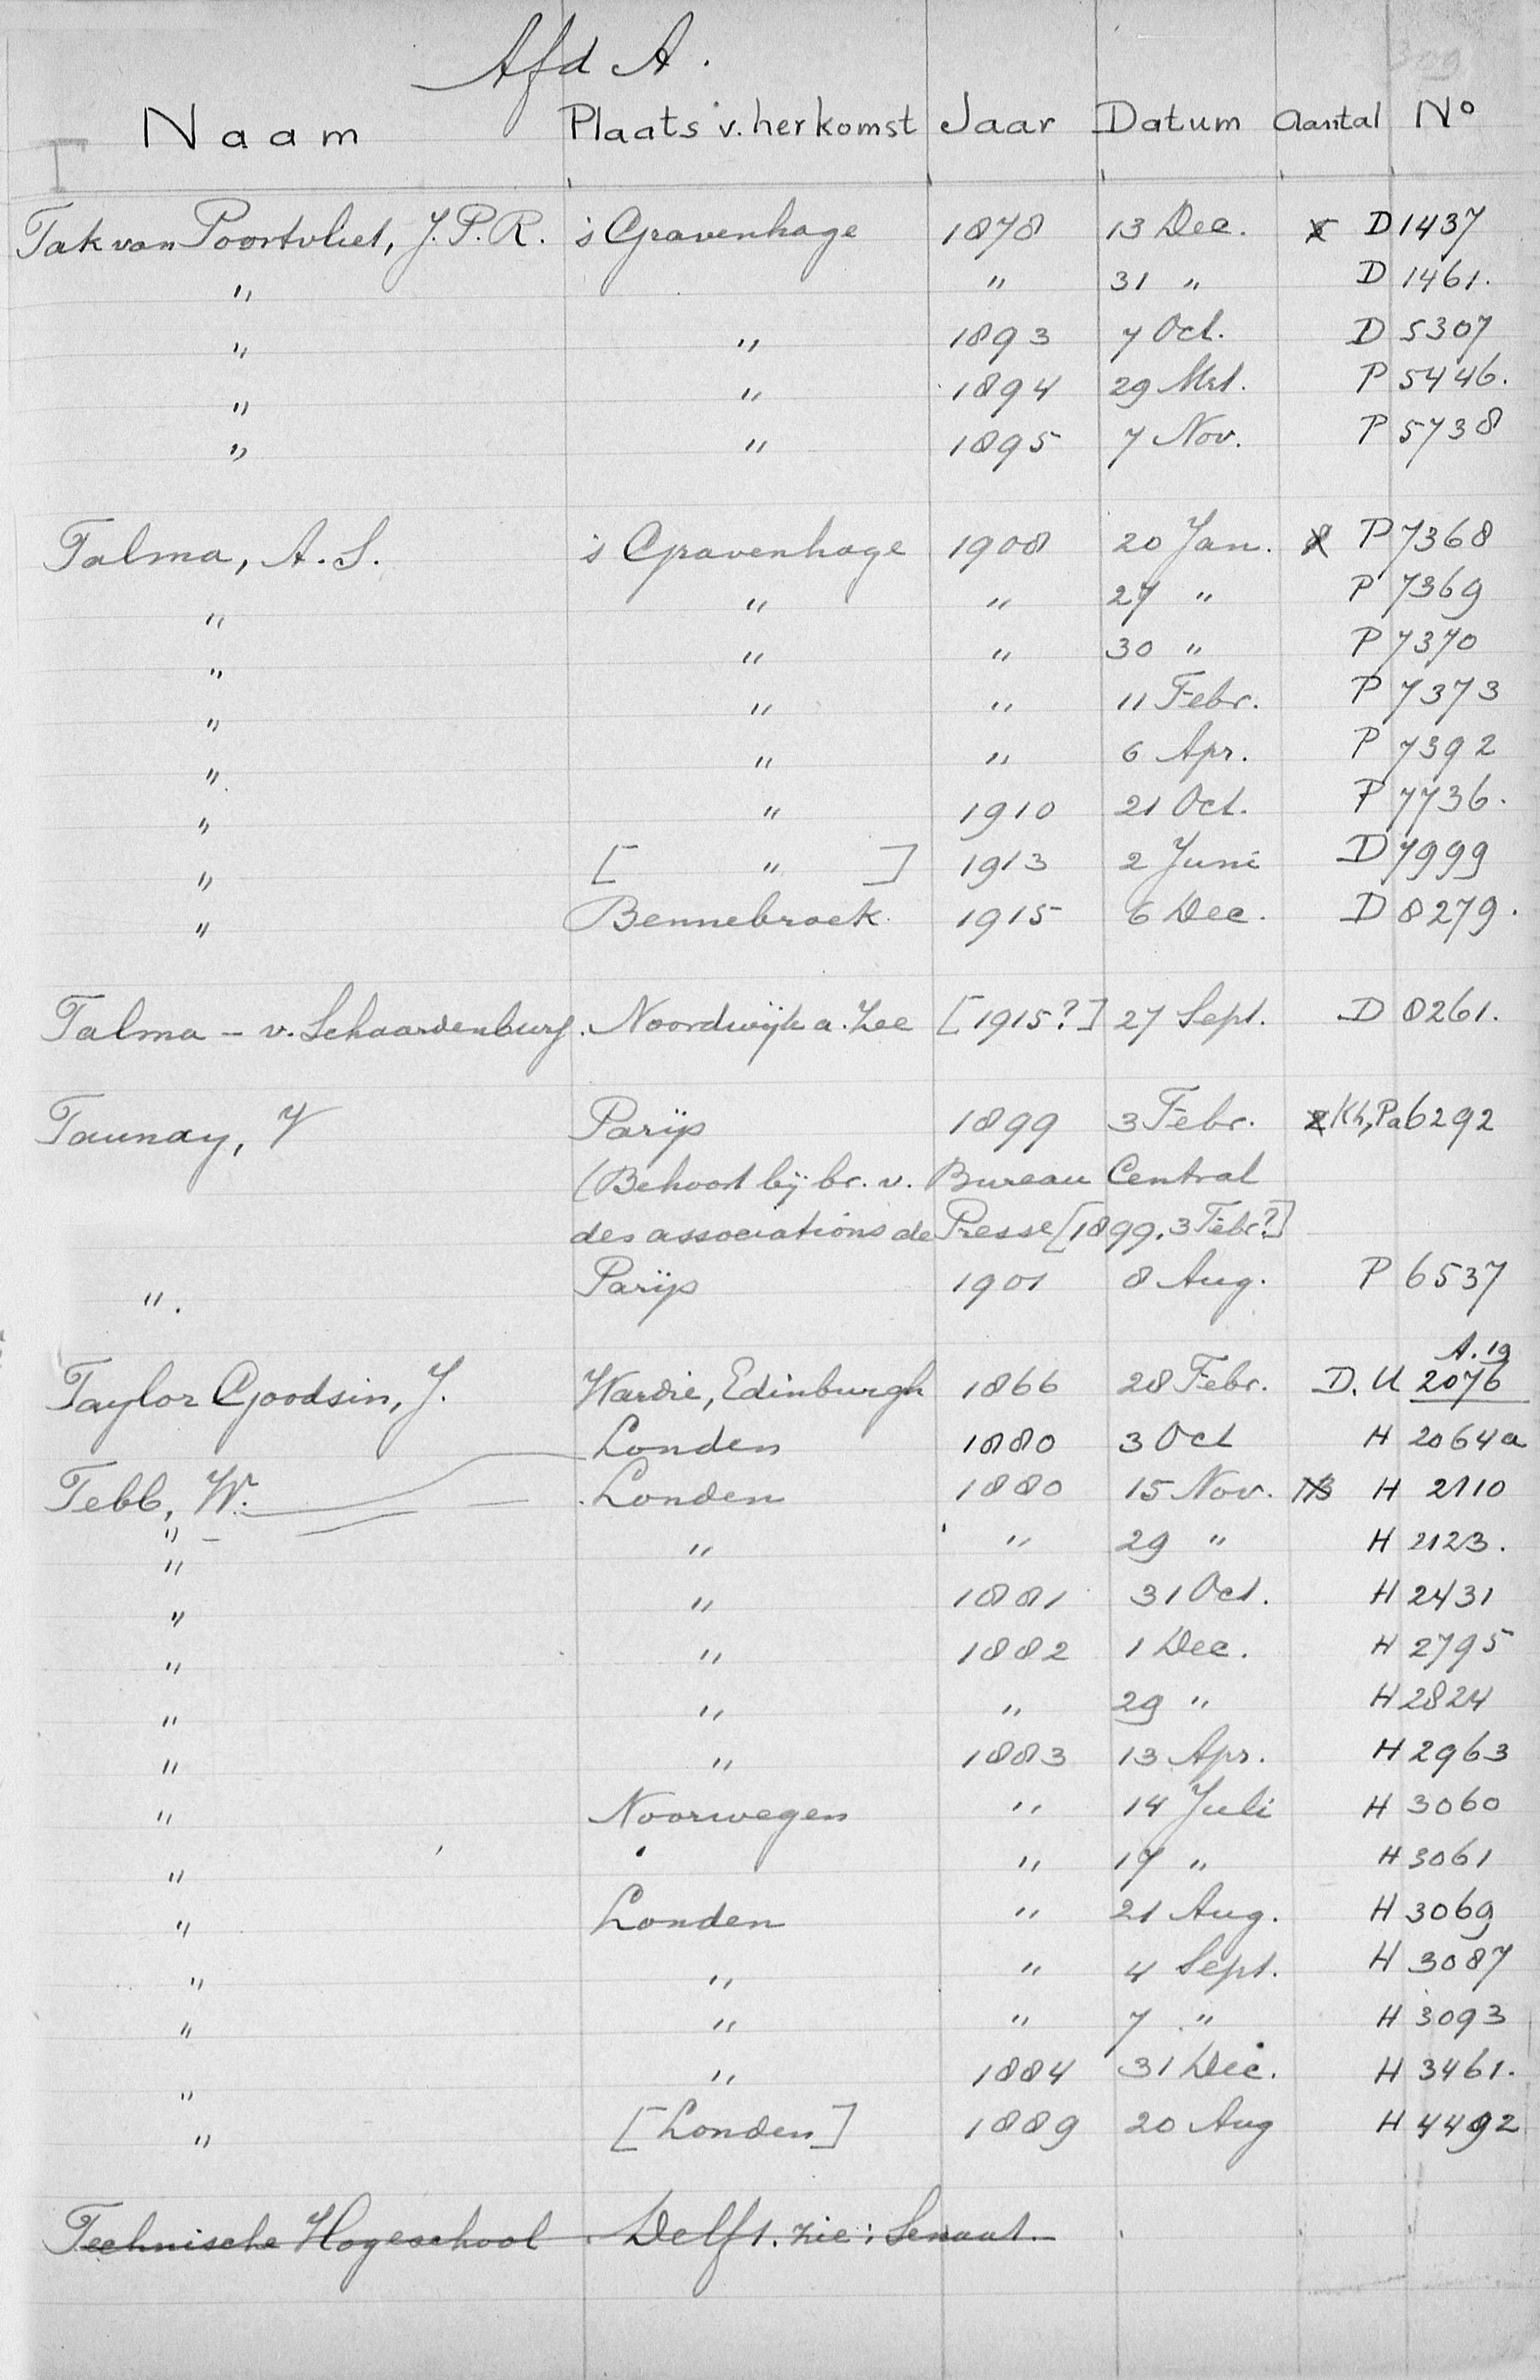 Afd A.
Naam Plaats v. herkomst Jaar Datum Aantal No
Tak van Poortvliet, J.P.R. 's Gravenhage 1878 13 Dec. D 1437
" " 31 " D 1461.
" " 1893 7 Oct. D 5307
" " 1894 29 Mrt. P 5446.
" " 1895 7 Nov. P 5738
Talma, A.S. 's Gravenhage 1908 20 Jan. 8 P 7368
" " " 27 " P 7369
" " " 30 " P 7370
" " " 11 Febr. P 7373
" " " 6 Apr. P 7392
" " 1910 21 Oct. P 7736.
" [ " ] 1913 2 Juni D 7999
" Bennebroek 1915 6 Dec. D 8279.
Talma - v. Schaardenburg. Noordwijk a. Zee [1915?] 27 Sept. D 8261.
Taunay, V Parijs 1899 3 Febr. 2 Kh, Pa 6292
(Behoort bij br. v. Bureau Central
des associations de Presse [1899. 3 Febr?]
". Parijs 1901 8 Aug. P 6537
A. 19
Taylor Goodsin, J. Wardie, Edinburgh 1866 28 Febr. D. U 2076
Londen 1880 3 Oct H 2064a
Tebb, W. Londen 1880 15 Nov. 13 H 2110
"
" " " 29 " H 2123.
" " 1881 31 Oct. H 2431
" " 1882 1 Dec. H 2795
" " " 29 " H 2824
" " 1883 13 Apr. H 2963
" Noorwegen " 14 Juli H 3060
" ' " 17 " H 3061
" Londen " 21 Aug. H 3069
" " " 4 Sept. H 3087
" " " 7 " H 3093
" " 1884 31 Dec. H 3461.
" [Londen] 1889 20 Aug H 4492
Technische Hogeschool Delft. zie: Senaat.